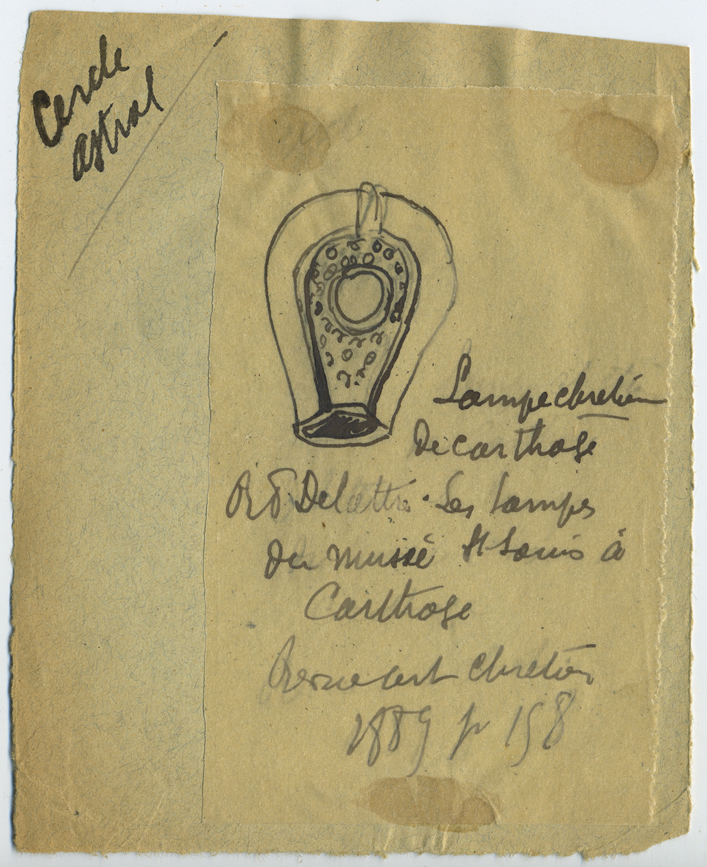 Cercle
astral
Lampe chretien
de carthage
R P Delattre. Les lampes
du mussé St Louis à
Carthage
Revue art chretien
1889 p 158